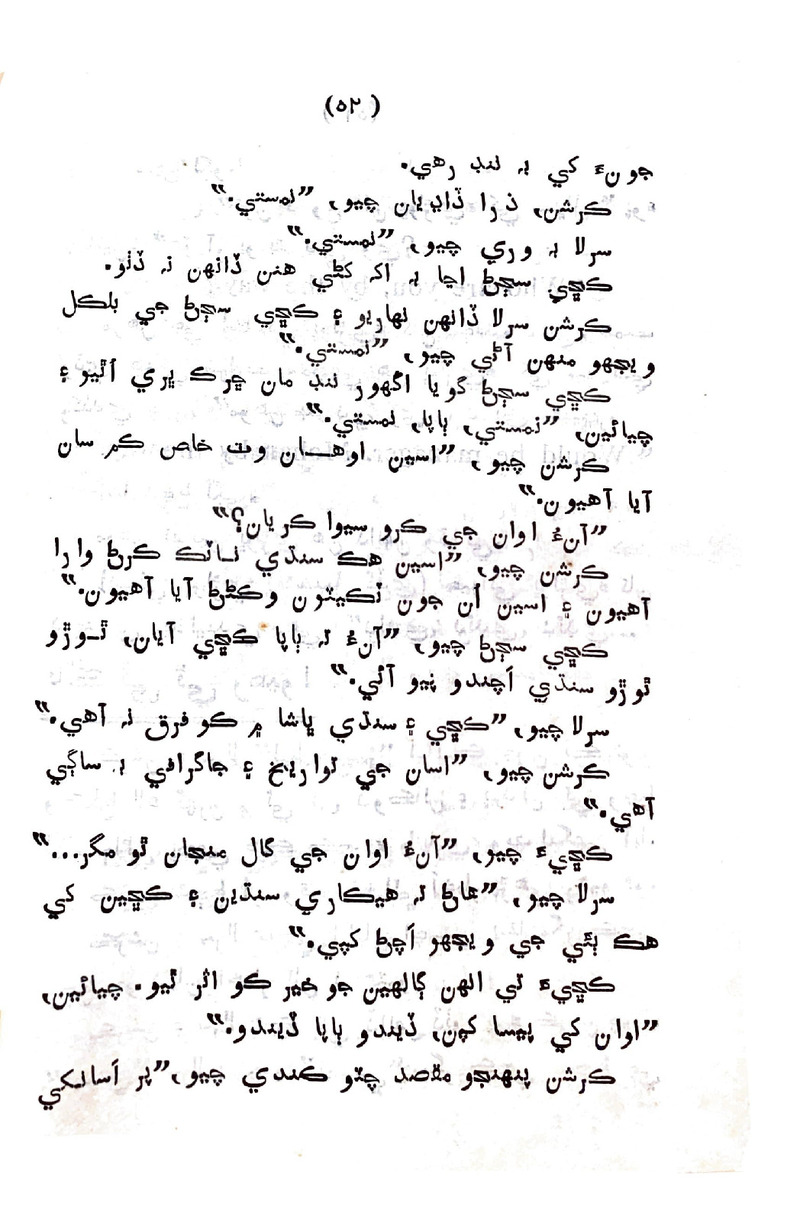 (٥٢)
جونءِ کي بہ ننڊ رهي.
ڪرشن، ذرا ڏاڍيان چيو، ”نمستي.“
سرلا بہ وري چيو، ”نمستي.“
ڪڇي سڄڻ اڃا بہ اک کڻي هنن ڏانهن نہ ڏٺو.
ڪرشن سرلا ڏانهن نهاريو ۽ ڪڇي سڄڻ جي بلڪل
ويجهو منهن آڻي چيو، ”نمستي.“
ڪڇي سڄڻ گويا اگهور ننڊ مان ڇرڪ ڀري اُٿيو ۽
چيائين، ”نمستي، ٻاپا، نمستي.“
ڪرشن چيو، ”اسين اوهان وٽ خاص ڪم سان
آيا آهيون.“
”آنءُ اوان جي ڪرو سيوا ڪريان؟“
ڪرشن چيو، ”اسين هڪ سنڌي ناٽڪ ڪرڻ وارا
آهيون ۽ اسين اُن جون ٽڪيٽون وڪڻڻ آيا آهيون.“
ڪڇي سڄڻ چيو، ”آنءُ تہ ٻاپا ڪڇي آيان، ٿوڙو
ٿوڙو سنڌي اَچندو پيو آئي.“
سرلا چيو، ”ڪڇي ۽ سنڌي ڀاشا ۾ ڪو فرق نہ آهي.“
ڪرشن چيو، ”اسان جي تواريخ ۽ جاگرافي بہ ساڳي
آهي.“
ڪڇيءَ چيو، ”آنءُ اوان جي گال منڃان ٿو مگر...“
سرلا چيو، ”هاڻ تہ هيڪاري سنڌين ۽ ڪڇين کي
هڪ ٻئي جي ويجهو اَچڻ کپي.“
ڪڇيءَ تي انهن ڳالهين جو خير ڪو اثر ٿيو. چيائين،
”اوان کي پيسا کپن، ڏيندو ٻاپا ڏيندو.“
ڪرشن پنهنجو مقصد چٽو ڪندي چيو، ”پر اَسانکي